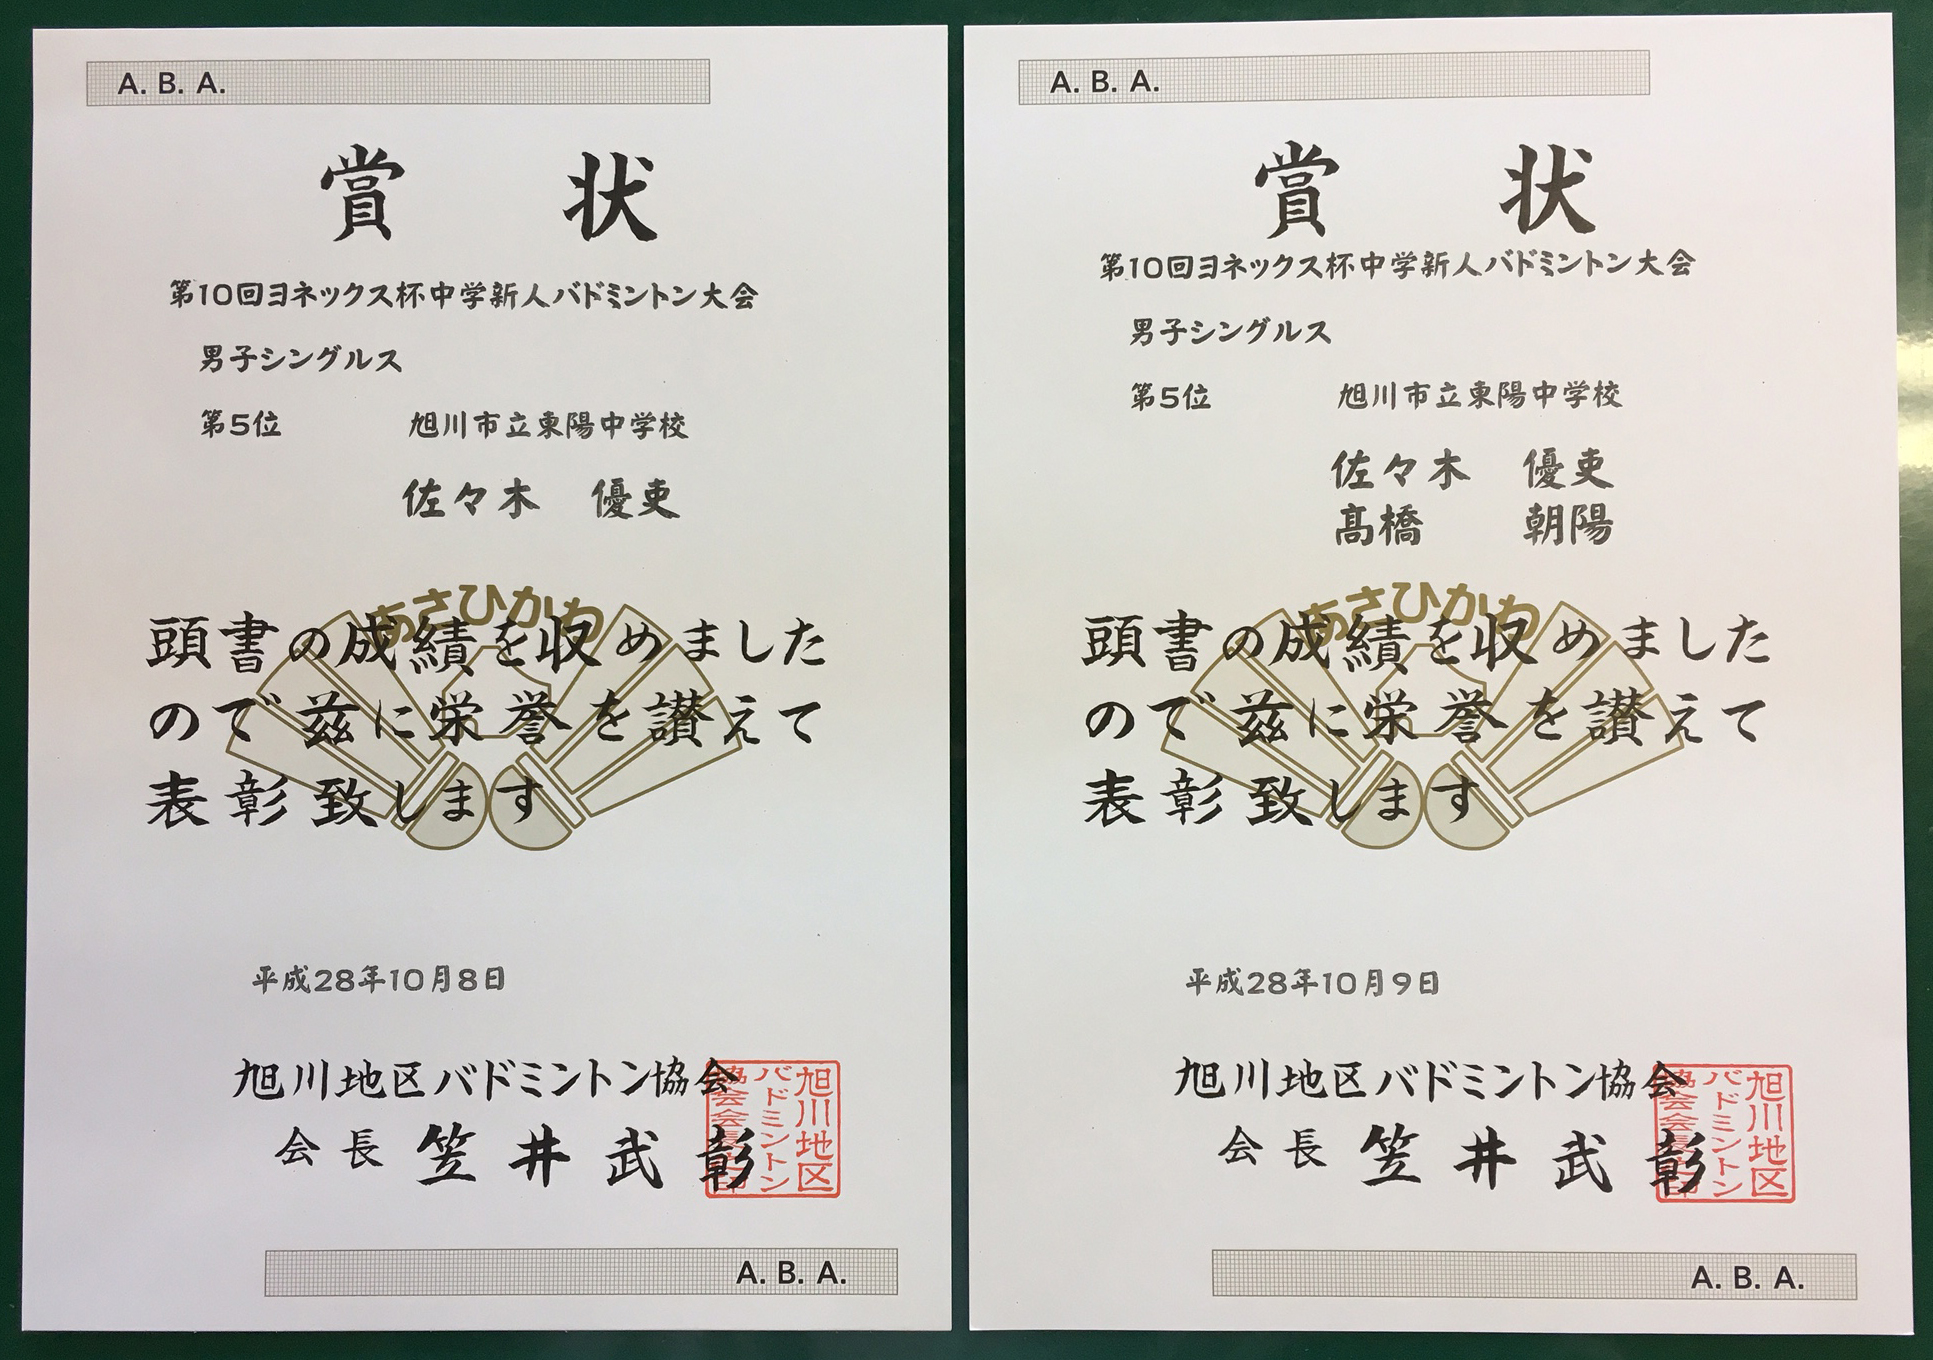 A. B. A.
賞 状
第10回ヨネックス杯中学新人バドミントン大会
男子シングルス
第5位 旭川市立東陽中学校
佐々木 優吏
あさひかわ
頭書の成績を収めました
ので茲に栄誉を讃えて
表彰致します
平成28年10月8日
旭川地区バドミントン協会
会長 笠井武彰
旭川地区
バドミントン
協会会長之印
A. B. A.
A. B. A.
賞 状
第10回ヨネックス杯中学新人バドミントン大会
男子シングルス
第5位 旭川市立東陽中学校
佐々木 優吏
髙橋 朝陽
あさひかわ
頭書の成績を収めました
ので茲に栄誉を讃えて
表彰致します
平成28年10月9日
旭川地区バドミントン協会
会長 笠井武彰
旭川地区
バドミントン
協会会長之印
A. B. A.